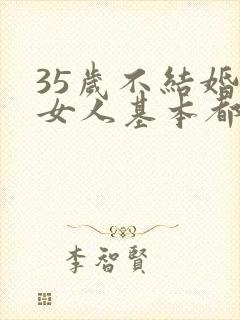 35歲不結婚
女人基本都
李智賢